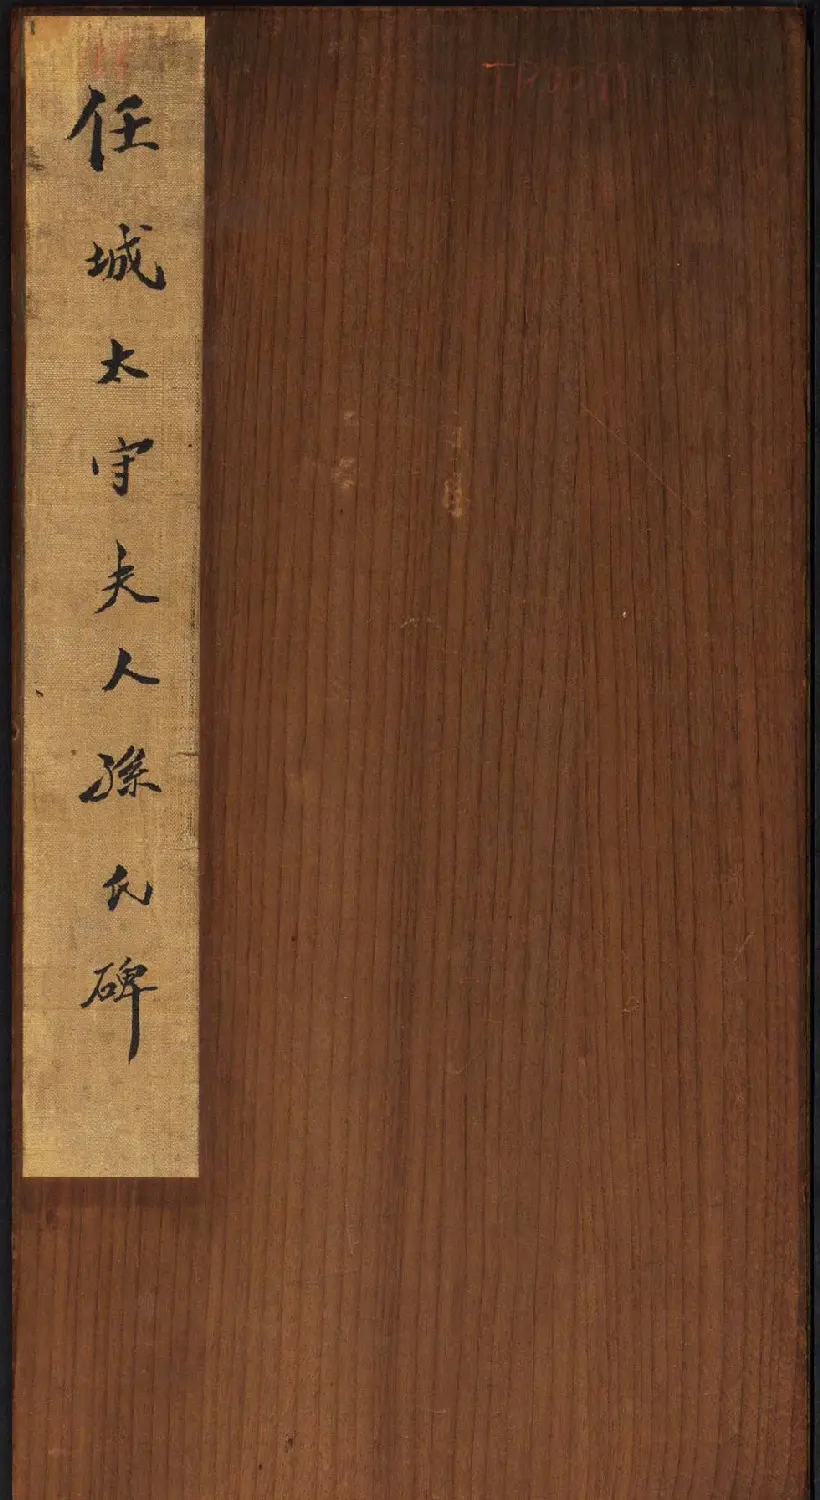 任城太守夫人孫氏碑